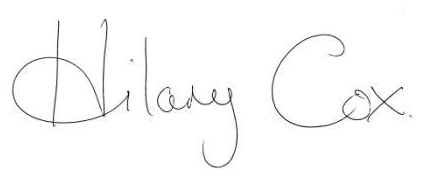 Hilary Cox.